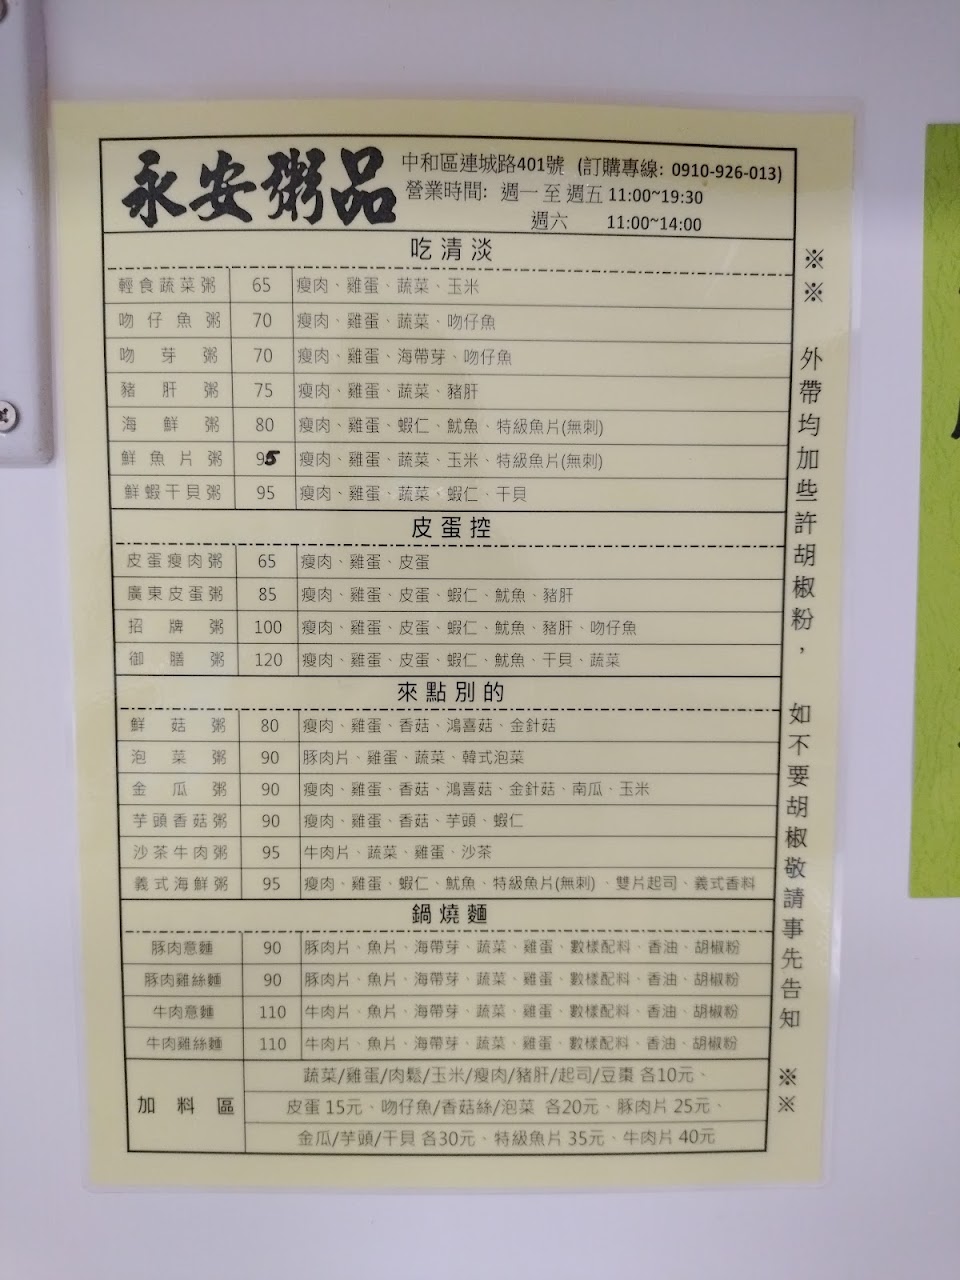 永安粥品
中和區連城路401號 (訂購專線: 0910-926-013)
營業時間: 週一 至 週五 11:00~19:30
週六 11:00~14:00
吃清淡
輕食蔬菜粥 65 瘦肉、雞蛋、蔬菜、玉米
吻仔魚粥 70 瘦肉、雞蛋、蔬菜、吻仔魚
吻芽粥 70 瘦肉、雞蛋、海帶芽、吻仔魚
豬肝粥 75 瘦肉、雞蛋、蔬菜、豬肝
海鮮粥 80 瘦肉、雞蛋、蝦仁、魷魚、特級魚片(無刺)
鮮魚片粥 95 瘦肉、雞蛋、蔬菜、玉米、特級魚片(無刺)
鮮蝦干貝粥 95 瘦肉、雞蛋、蔬菜、蝦仁、干貝
皮蛋控
皮蛋瘦肉粥 65 瘦肉、雞蛋、皮蛋
廣東皮蛋粥 85 瘦肉、雞蛋、皮蛋、蝦仁、魷魚、豬肝
招牌粥 100 瘦肉、雞蛋、皮蛋、蝦仁、魷魚、豬肝、吻仔魚
御膳粥 120 瘦肉、雞蛋、皮蛋、蝦仁、魷魚、干貝、蔬菜
來點別的
鮮菇粥 80 瘦肉、雞蛋、香菇、鴻喜菇、金針菇
泡菜粥 90 豚肉片、雞蛋、蔬菜、韓式泡菜
金瓜粥 90 瘦肉、雞蛋、香菇、鴻喜菇、金針菇、南瓜、玉米
芋頭香菇粥 90 瘦肉、雞蛋、香菇、芋頭、蝦仁
沙茶牛肉粥 95 牛肉片、蔬菜、雞蛋、沙茶
義式海鮮粥 95 瘦肉、雞蛋、蝦仁、魷魚、特級魚片(無刺)、雙片起司、義式香料
鍋燒麵
豚肉意麵 90 豚肉片、魚片、海帶芽、蔬菜、雞蛋、數樣配料、香油、胡椒粉
豚肉雞絲麵 90 豚肉片、魚片、海帶芽、蔬菜、雞蛋、數樣配料、香油、胡椒粉
牛肉意麵 110 牛肉片、魚片、海帶芽、蔬菜、雞蛋、數樣配料、香油、胡椒粉
牛肉雞絲麵 110 牛肉片、魚片、海帶芽、蔬菜、雞蛋、數樣配料、香油、胡椒粉
加料區
蔬菜/雞蛋/肉鬆/玉米/瘦肉/豬肝/起司/豆棗 各10元、
皮蛋 15元、吻仔魚/香菇絲/泡菜 各20元、豚肉片 25元、
金瓜/芋頭/干貝 各30元、特級魚片 35元、牛肉片 40元
※※ 外帶均加些許胡椒粉，如不要胡椒敬請事先告知 ※※